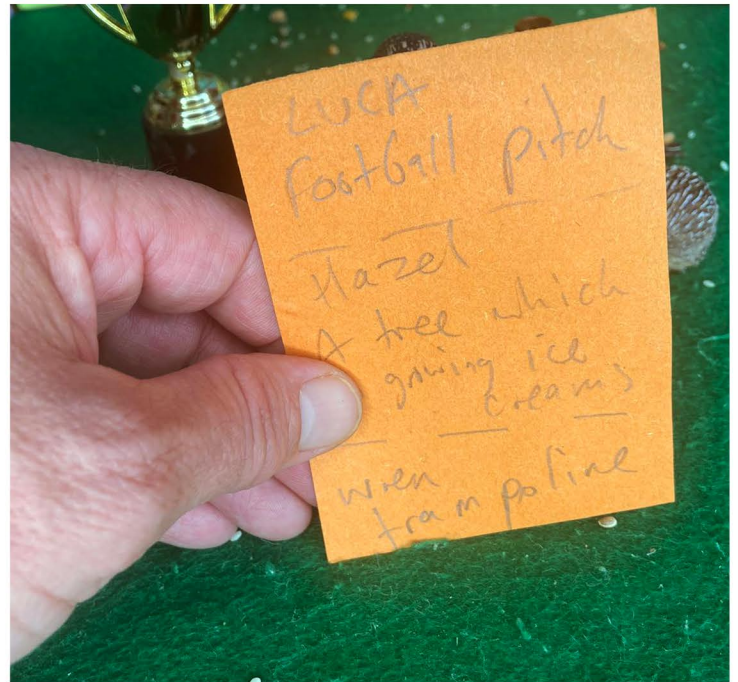 LUCA
Football pitch
Hazel
A tree which
growing ice
creams
wren
trampoline